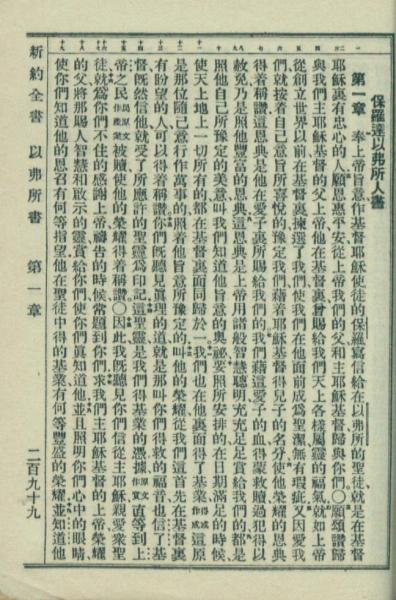 保羅達以弗所人書
第一章 奉上帝旨意作基督耶穌使徒的保羅寫信給在以弗所的聖徒就是在基督
耶穌裏有忠心的人願恩惠平安從上帝我們的父和主耶穌基督歸與你們〇願頌讚歸
與我們主耶穌基督的父上帝他在基督裏曾賜給我們天上各樣屬靈的福氣就如上帝
從創立世界以前在基督裏揀選了我們使我們在他面前成為聖潔無有瑕疵又因愛我
們就按着自己意旨所喜悅的豫定我們藉着耶穌基督得兒子的名分使他榮耀的恩典
得着稱讚這恩典是他在愛子裏所賜給我們的我們藉這愛子的血得蒙救贖過犯得以
赦免乃是照他豐富的恩典這恩典是上帝用諸般智慧聰明充充足足賞給我們的都是
照他自己所豫定的美意叫我們知道他旨意的奧祕要照所安排的在日期滿足的時候
使天上地上一切所有的都在基督裏面同歸於一我們也在他裏面得了基業 得或作成 這原
是那位隨己意行作萬事的照着他旨意所豫定的叫他的榮耀從我們這首先在基督裏
有盼望的人可以得着稱讚你們既聽見真理的道就是那叫你們得救的福音也信了基
督既然信他就受了所應許的聖靈為印記這聖靈是我們得基業的憑據 原文作質 直等到上
帝之民 原文作產業 被贖使他的榮耀得着稱讚〇因此我既聽見你們信從主耶穌親愛衆聖
徒就為你們不住的感謝上帝禱告的時候常題到你們求我們主耶穌基督的上帝榮耀
的父將那賜人智慧和啟示的靈賞給你們使你們真知道他並且照明你們心中的眼睛
使你們知道他的恩召有何等指望他在聖徒中得的基業有何等豐盛的榮耀並知道他
新約全書 以弗所書 第一章 二百九十九